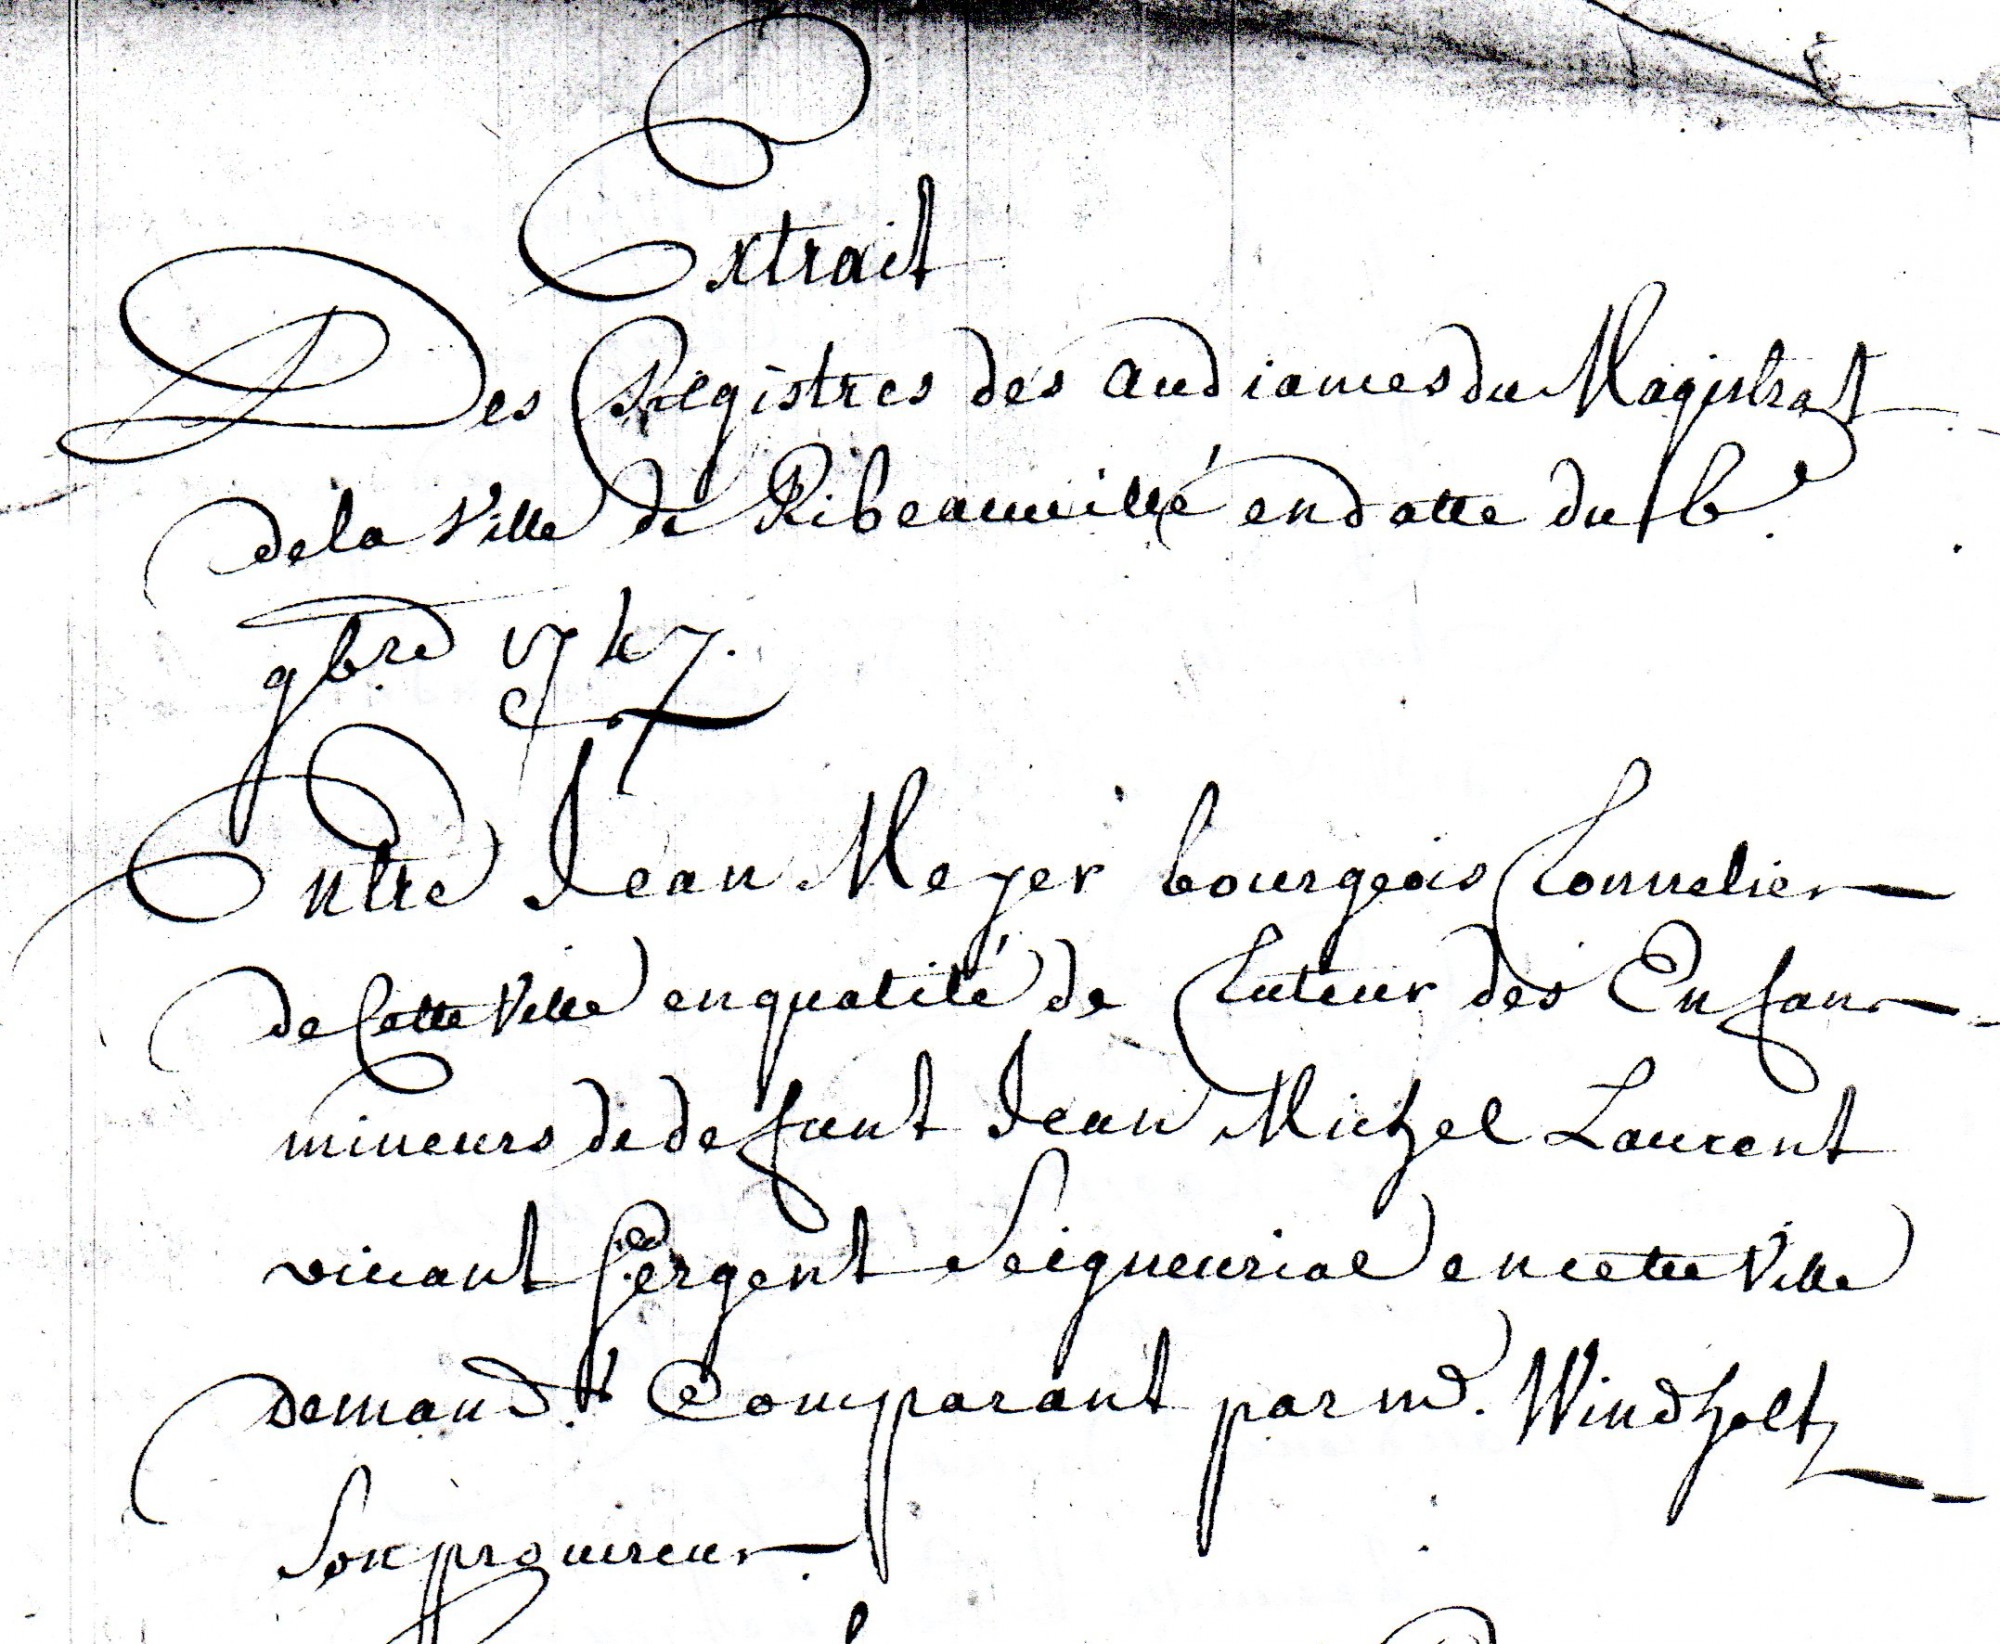 Extrait
Des Registres des audiances du Magistrat
de la Ville de Ribeauuillé en datte du 6.e
9bre 1747.
Entre Jean Meyer bourgeois Tonnelier
de Cette Ville en qualité de Tuteur des Enfans
mineurs de defunt Jean Michel Laurent
viuant Sergent Seigneurial en cette Ville
Demand.t Comparant par md. Windholtz
Son procureur